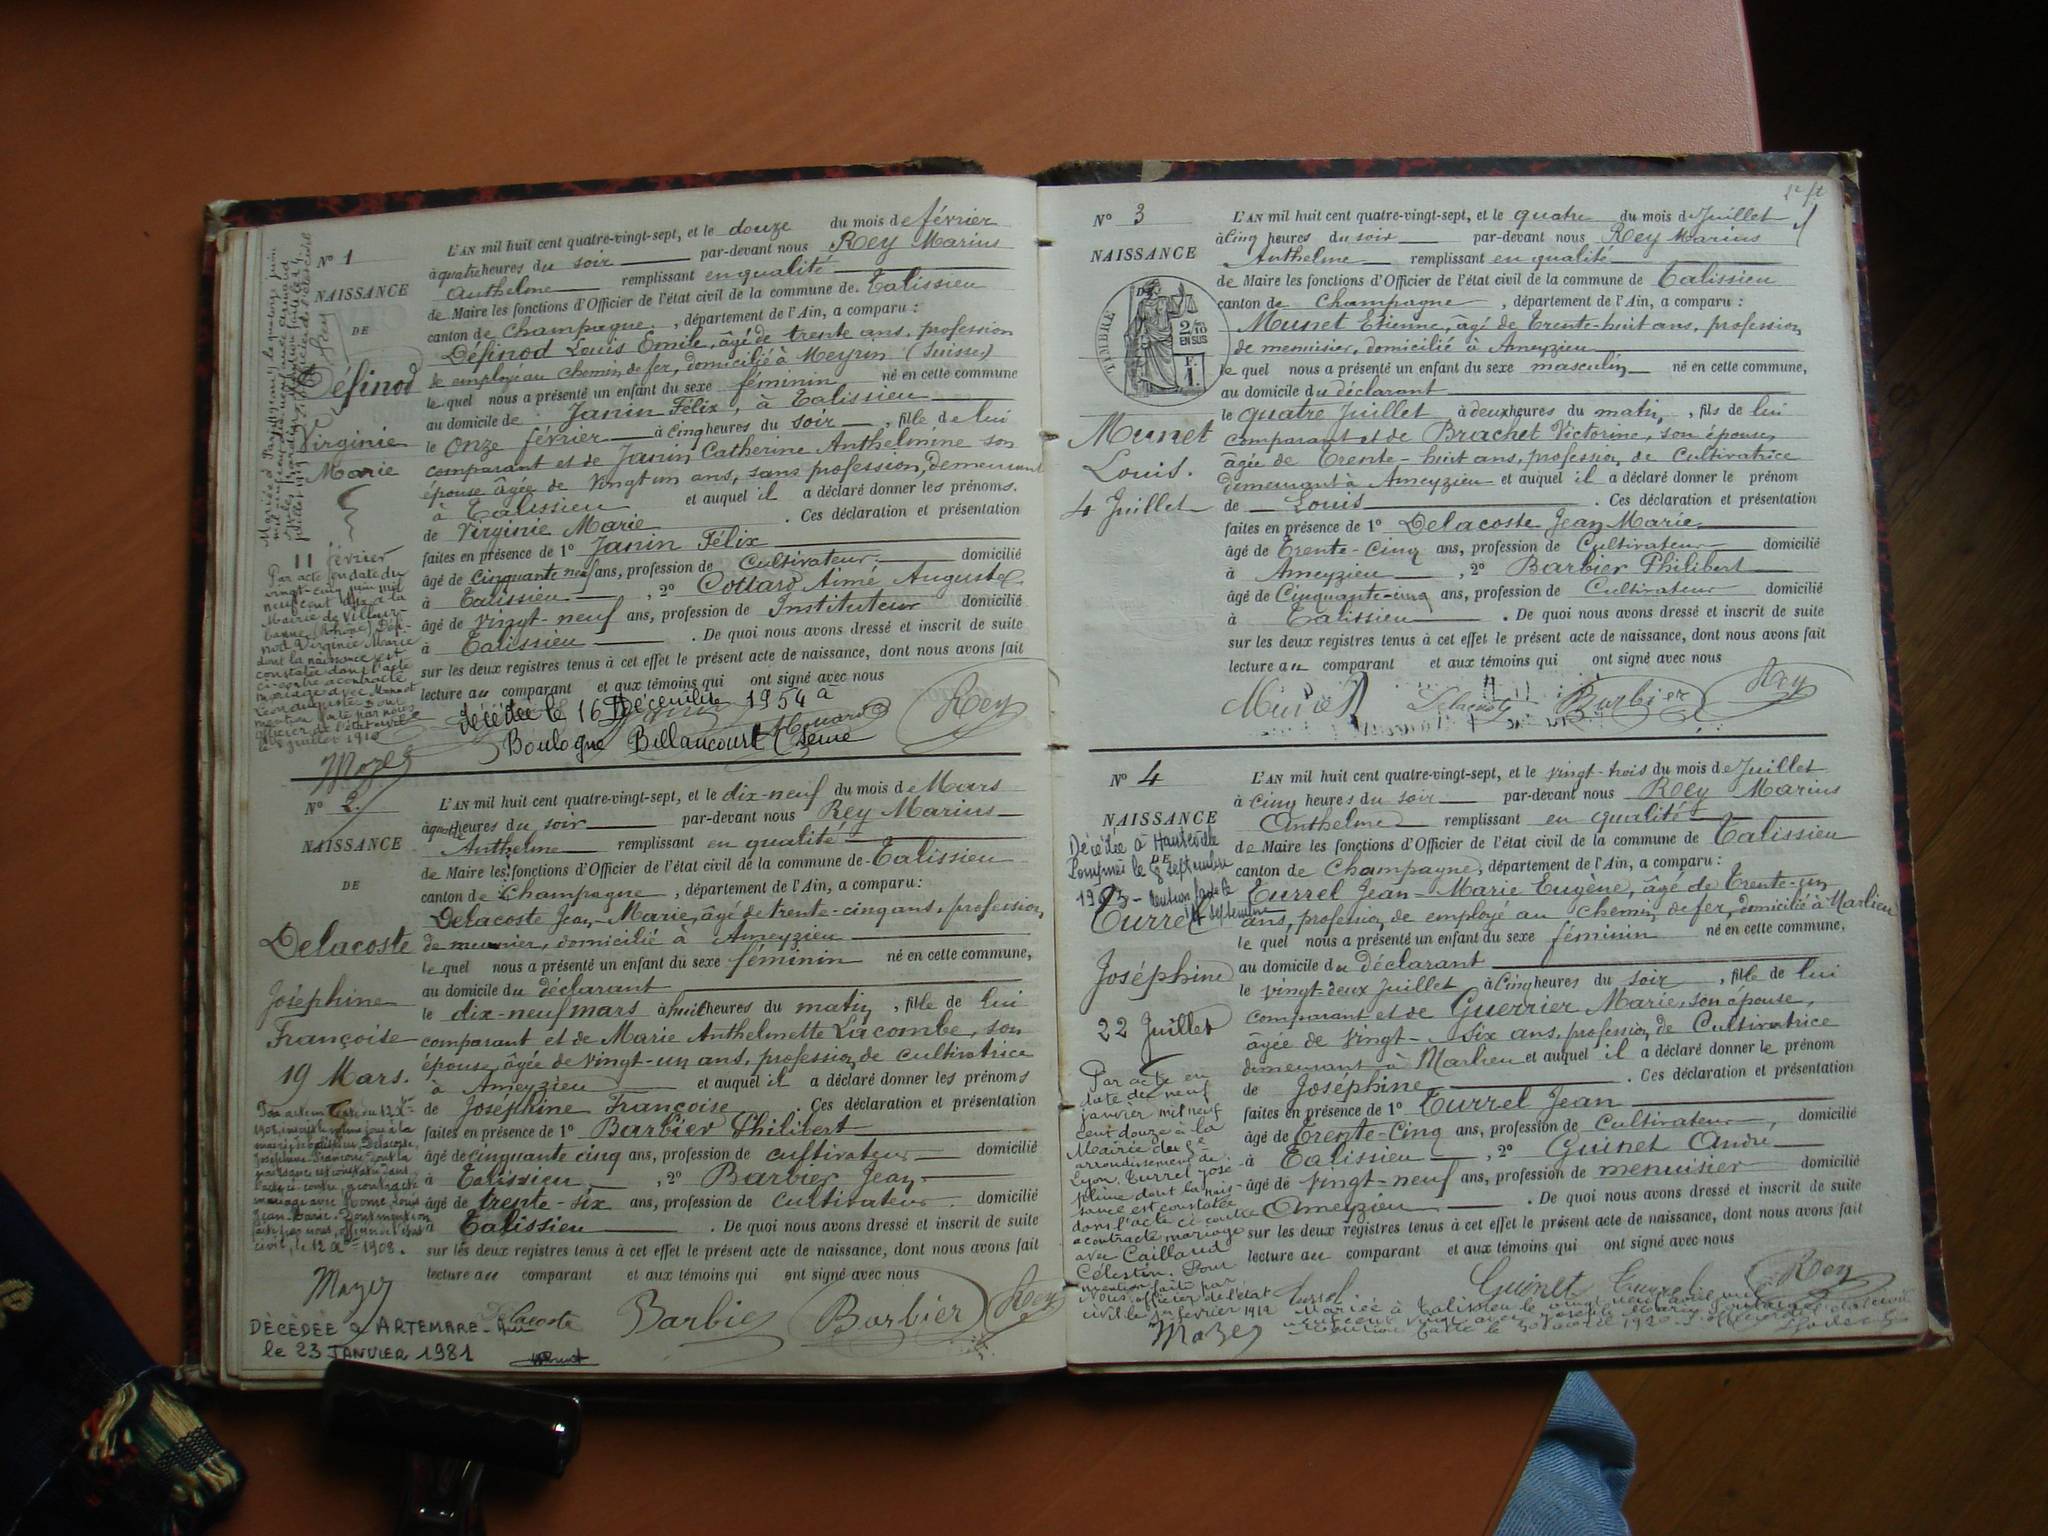 N° 1
NAISSANCE
DE
Définod
Virginie
Marie
11 février
Par acte en date du
vingt-cinq juin mil
neuf cent dix à la
Mairie de Villeur-
banne (Rhône) Défi-
nod Virginie Marie
dont la naissance est
constatée dans l'acte
ci-contre a contracté
mariage avec Monnot
Léon Auguste Dont
mention faite par nous
officier de l'état civil
le juillet 1910
L'AN mil huit cent quatre-vingt-sept, et le douze du mois de février
à quatre heures du soir par-devant nous Rey Marius
Anthelme remplissant en qualité
de Maire les fonctions d'Officier de l'état civil de la commune de Talissieu
canton de Champagne, département de l'Ain, a comparu :
Définod Louis Emile, âgé de trente ans, profession
de employé au chemin de fer, domicilié à Meyrin (Suisse)
le quel nous a présenté un enfant du sexe féminin né en cette commune
au domicile de Janin Félix, à Talissieu
le onze février à cinq heures du soir, fille de lui
comparant et de Janin Catherine Anthelmine son
épouse âgée de vingt un ans, sans profession, demeurant
à Talissieu et auquel il a déclaré donner les prénoms.
de Virginie Marie. Ces déclaration et présentation
faites en présence de 1° Janin Félix
âgé de cinquante neuf ans, profession de Cultivateur domicilié
à Talissieu, 2° Cottard Aimé Auguste
âgé de vingt-neuf ans, profession de Instituteur domicilié
à Talissieu. De quoi nous avons dressé et inscrit de suite
sur les deux registres tenus à cet effet le présent acte de naissance, dont nous avons fait
lecture au comparant et aux témoins qui ont signé avec nous
Décédée le 16 Décembre 1954 à
Boulogne Billancourt (Seine
Rey
Mazez
N° 2
NAISSANCE
DE
Delacoste
Joséphine
Françoise
19 Mars.
L'AN mil huit cent quatre-vingt-sept, et le dix-neuf du mois de Mars
à quatre heures du soir par-devant nous Rey Marius
Anthelme remplissant en qualité
de Maire les fonctions d'Officier de l'état civil de la commune de Talissieu
canton de Champagne, département de l'Ain, a comparu :
Delacoste Jean-Marie, âgé de trente-cinq ans, profession
de meunier, domicilié à Ameyzieu
le quel nous a présenté un enfant du sexe féminin né en cette commune,
au domicile du déclarant
le dix-neuf mars à huit heures du matin, fille de lui
comparant et de Marie Anthelmette Lacombe, son
épouse âgée de vingt-un ans, profession de cultivatrice
à Ameyzieu et auquel il a déclaré donner les prénoms
de Joséphine Françoise. Ces déclaration et présentation
faites en présence de 1° Barbier Philibert
âgé de cinquante cinq ans, profession de cultivateur domicilié
à Talissieu, 2° Barbier Jean
âgé de trente-six ans, profession de cultivateur domicilié
à Talissieu. De quoi nous avons dressé et inscrit de suite
sur les deux registres tenus à cet effet le présent acte de naissance, dont nous avons fait
lecture au comparant et aux témoins qui ont signé avec nous
mairie de Talissieu Delacoste
Joséphine Françoise dont la
naissance est constatée dans
l'acte ci-contre, a contracté
mariage avec Rome Louis
Jean-Marie. Dont mention
faite par nous, officier de l'état
civil, le 12 Xbre 1908.
Mazez
Delacoste Barbier Barbier Rey
DÉCÉDÉE à ARTEMARE
le 23 JANVIER 1981
N° 3
NAISSANCE
DE
TIMBRE
2/10
EN SUS
F.
1.
Munet
Louis.
4 Juillet
L'AN mil huit cent quatre-vingt-sept, et le quatre du mois de Juillet
à cinq heures du soir par-devant nous Rey Marius
Anthelme remplissant en qualité
de Maire les fonctions d'Officier de l'état civil de la commune de Talissieu
canton de Champagne, département de l'Ain, a comparu :
Munet Etienne, âgé de trente-huit ans, profession
de menuisier, domicilié à Ameyzieu
le quel nous a présenté un enfant du sexe masculin né en cette commune,
au domicile du déclarant
le quatre Juillet à deux heures du matin, fils de lui
comparant et de Brachet Victorine, son épouse,
âgée de Trente-huit ans, profession de Cultivatrice
demeurant à Ameyzieu et auquel il a déclaré donner le prénom
de Louis. Ces déclaration et présentation
faites en présence de 1° Delacoste Jean Marie
âgé de Trente-Cinq ans, profession de Cultivateur domicilié
à Ameyzieu, 2° Barbier Philibert
âgé de Cinquante-cinq ans, profession de Cultivateur domicilié
à Talissieu. De quoi nous avons dressé et inscrit de suite
sur les deux registres tenus à cet effet le présent acte de naissance, dont nous avons fait
lecture au comparant et aux témoins qui ont signé avec nous
Munet Delacoste Barbier Rey
N° 4
NAISSANCE
DE
Décédée à Hauteville
Lompnes le 8 septembre
1983
Turrel
Joséphine
22 Juillet
Par acte en
date du neuf
janvier mil neuf
cent douze à la
Mairie du 5e
arrondissement de
Lyon, Turrel José-
phine dont la nais-
sance est constatée
dans l'acte ci-contre
a contracté mariage
avec Caillaud
Célestin. Pour
mention faite par
Nous officier de l'état
civil le février 1912
Mazez
L'AN mil huit cent quatre-vingt-sept, et le vingt-trois du mois de Juillet
à cinq heures du soir par-devant nous Rey Marius
Anthelme remplissant en qualité
de Maire les fonctions d'Officier de l'état civil de la commune de Talissieu
canton de Champagne, département de l'Ain, a comparu :
Turrel Jean-Marie Eugène, âgé de Trente-un
ans, profession de employé au chemin de fer, domicilié à Marlieu
le quel nous a présenté un enfant du sexe féminin né en cette commune,
au domicile du déclarant
le vingt-deux Juillet à cinq heures du soir, fille de lui
comparant et de Guerrier Marie, son épouse,
âgée de vingt-six ans, profession de Cultivatrice
demeurant à Marlieu et auquel il a déclaré donner le prénom
de Joséphine. Ces déclaration et présentation
faites en présence de 1° Turrel Jean
âgé de Trente-Cinq ans, profession de Cultivateur, domicilié
à Talissieu, 2° Guinet André
âgé de vingt-neuf ans, profession de menuisier domicilié
à Ameyzieu. De quoi nous avons dressé et inscrit de suite
sur les deux registres tenus à cet effet le présent acte de naissance, dont nous avons fait
lecture au comparant et aux témoins qui ont signé avec nous
Turrel Guinet Turrel Rey
Mariée à Talissieu le vingt neuf avril mil
neuf cent vingt avec
Mention faite le 30 avril 1920